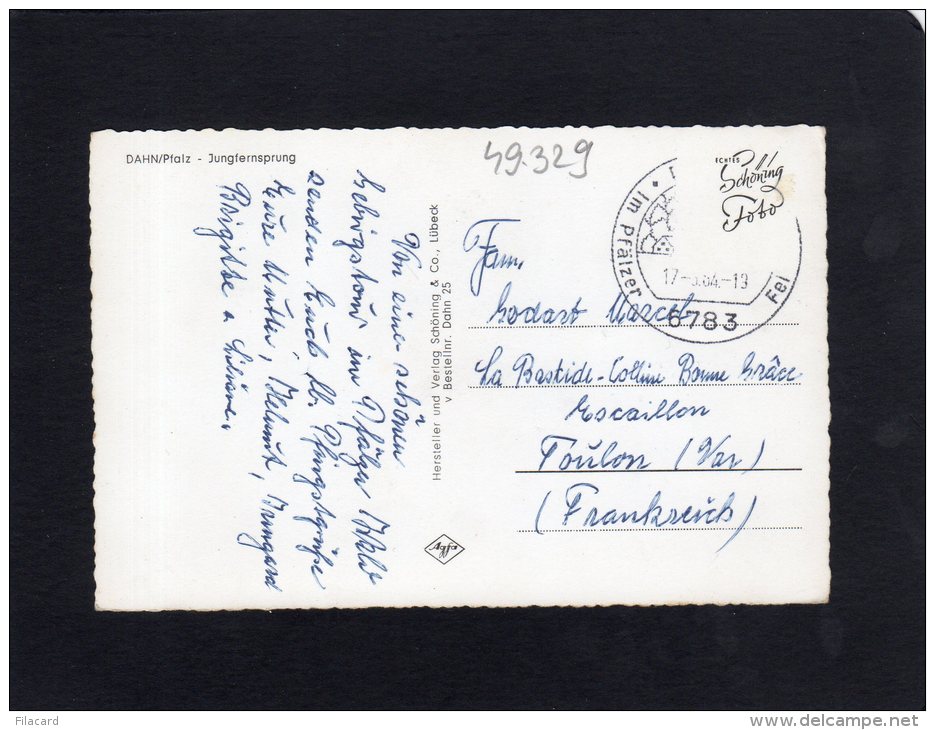 DAHN/Pfalz - Jungfernsprung
49.329
Von einer schönen
Gebirgstour im Pfälzer Wald
senden Euch lb. Pfingstgrüße
Eure Mutti, Helmut, Irmgard
Brigitte u. Liliane.
Hersteller und Verlag Schöning & Co., Lübeck
v Bestellnr. Dahn 25
Agfa
ECHTES
Schöning
Foto
Im Pfälzer Fel
17-5.64.-19
6783
Fam.
Godart Marcel
La Bastide-Colline Bonne Grâce
Escaillon
Toulon (Var)
(Frankreich)
Filacard
delcampe.net